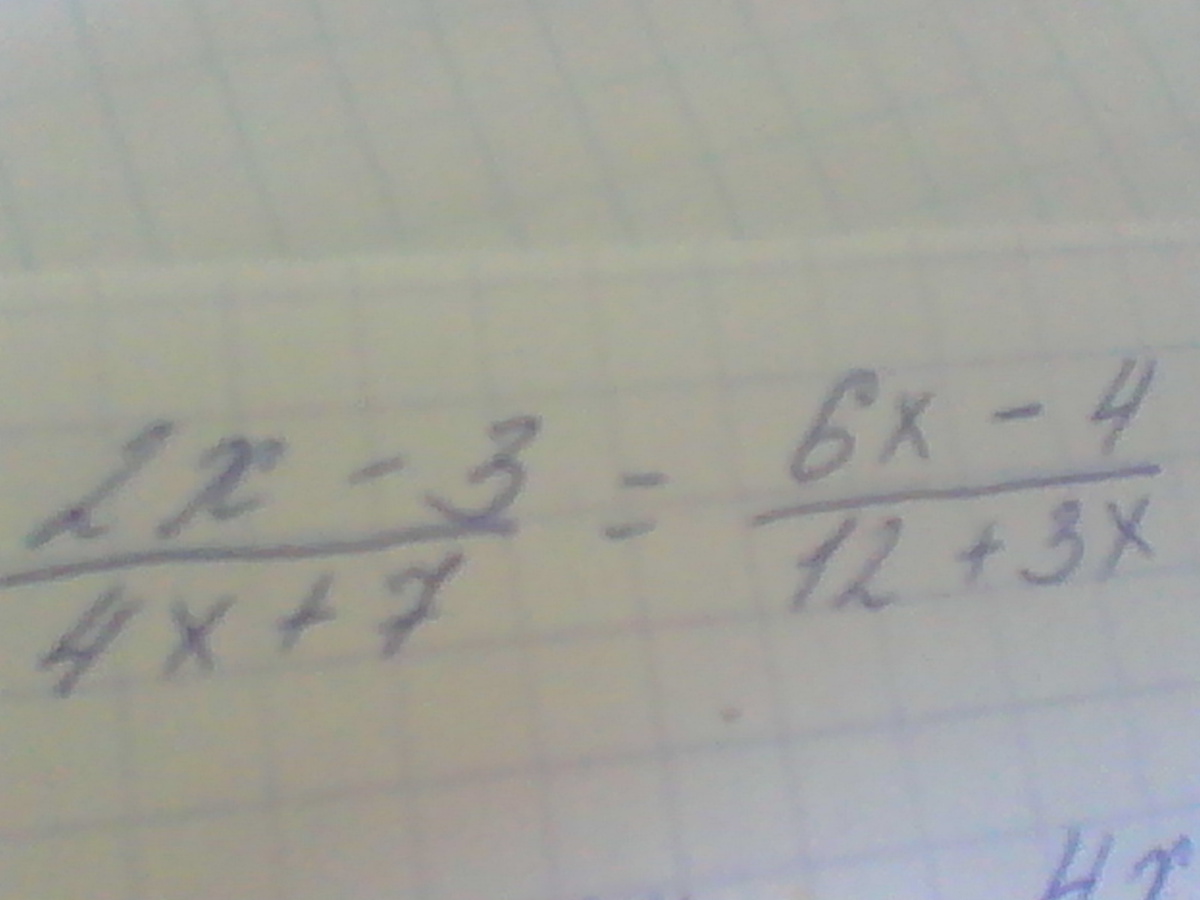 2x - 3 / 4x + 7 = 6x - 4 / 12 + 3x
4x